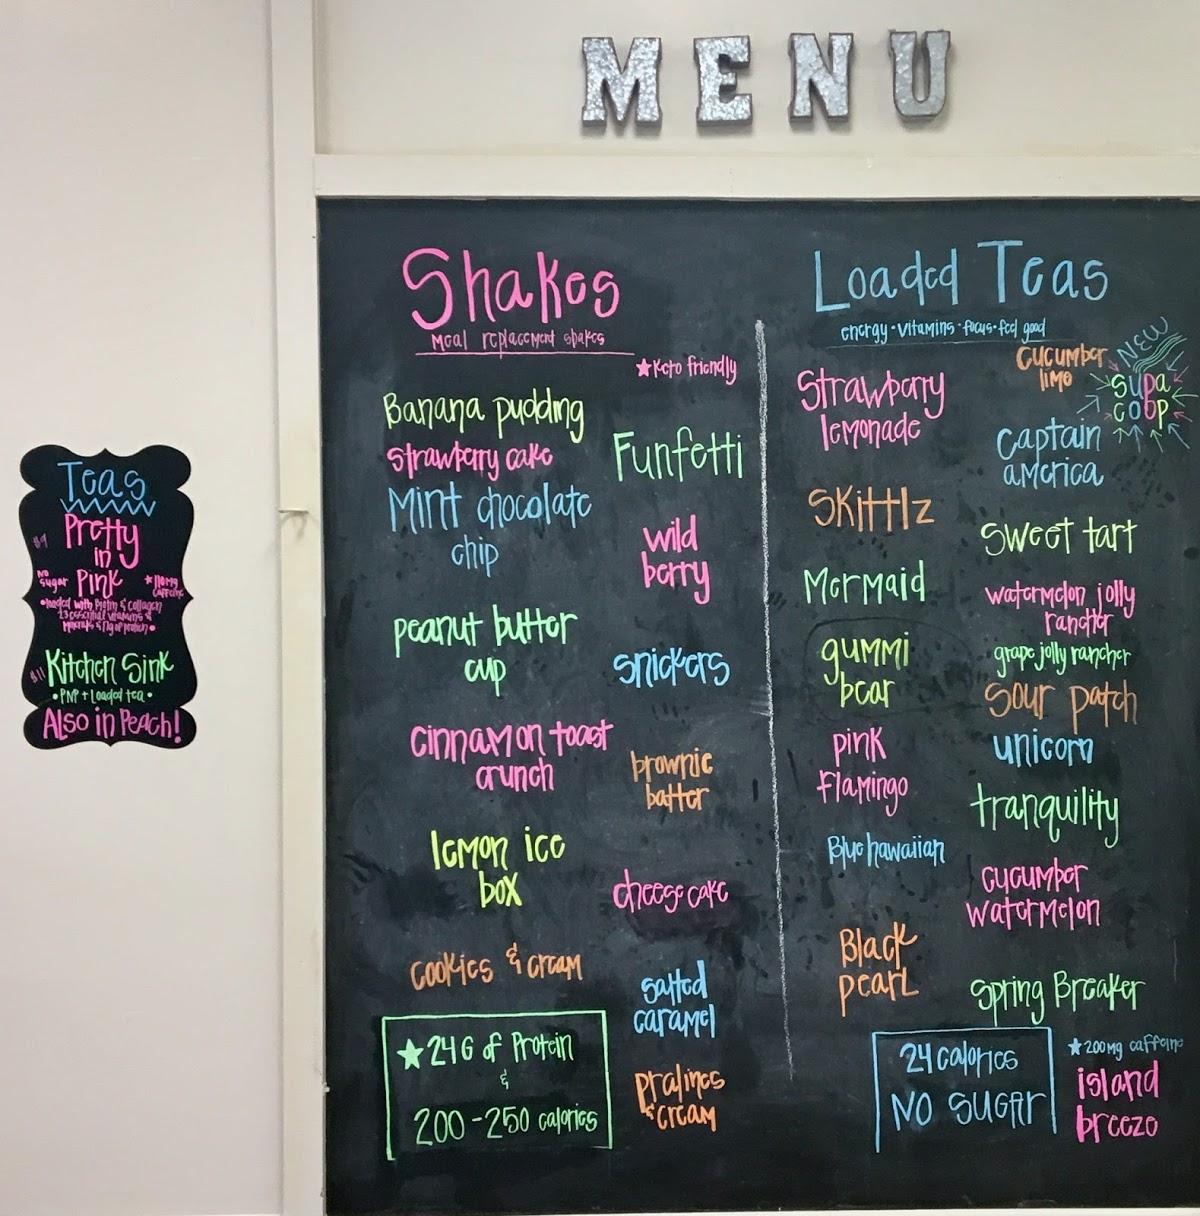 MENU
Teas
Pretty
in
Pink
$9
No
sugar
★110mg
caffeine
•loaded with Biotin & Collagen
23 essential vitamins &
Minerals & 17g of protein•
$11
Kitchen Sink
•PNP + Loaded tea•
Also in Peach!
Shakes
Meal replacement shakes
★Keto friendly
Banana pudding
strawberry cake
Mint chocolate
chip
peanut butter
cup
cinnamon toast
crunch
lemon ice
box
cookies & cream
Funfetti
wild
berry
snickers
brownie
batter
cheesecake
salted
caramel
pralines
& cream
★24G of Protein
&
200-250 calories
Loaded Teas
energy•vitamins•focus•feel good
Strawberry
lemonade
SKittlz
Mermaid
gummi
bear
pink
Flamingo
Blue hawaiian
Black
pearl
cucumber
lime
NEW
supa
coop
Captain
america
sweet tart
watermelon jolly
rancher
grape jolly rancher
sour patch
unicorn
tranquility
cucumber
watermelon
Spring Breaker
24 calories
NO SUGAR
★200mg caffeine
island
breeze